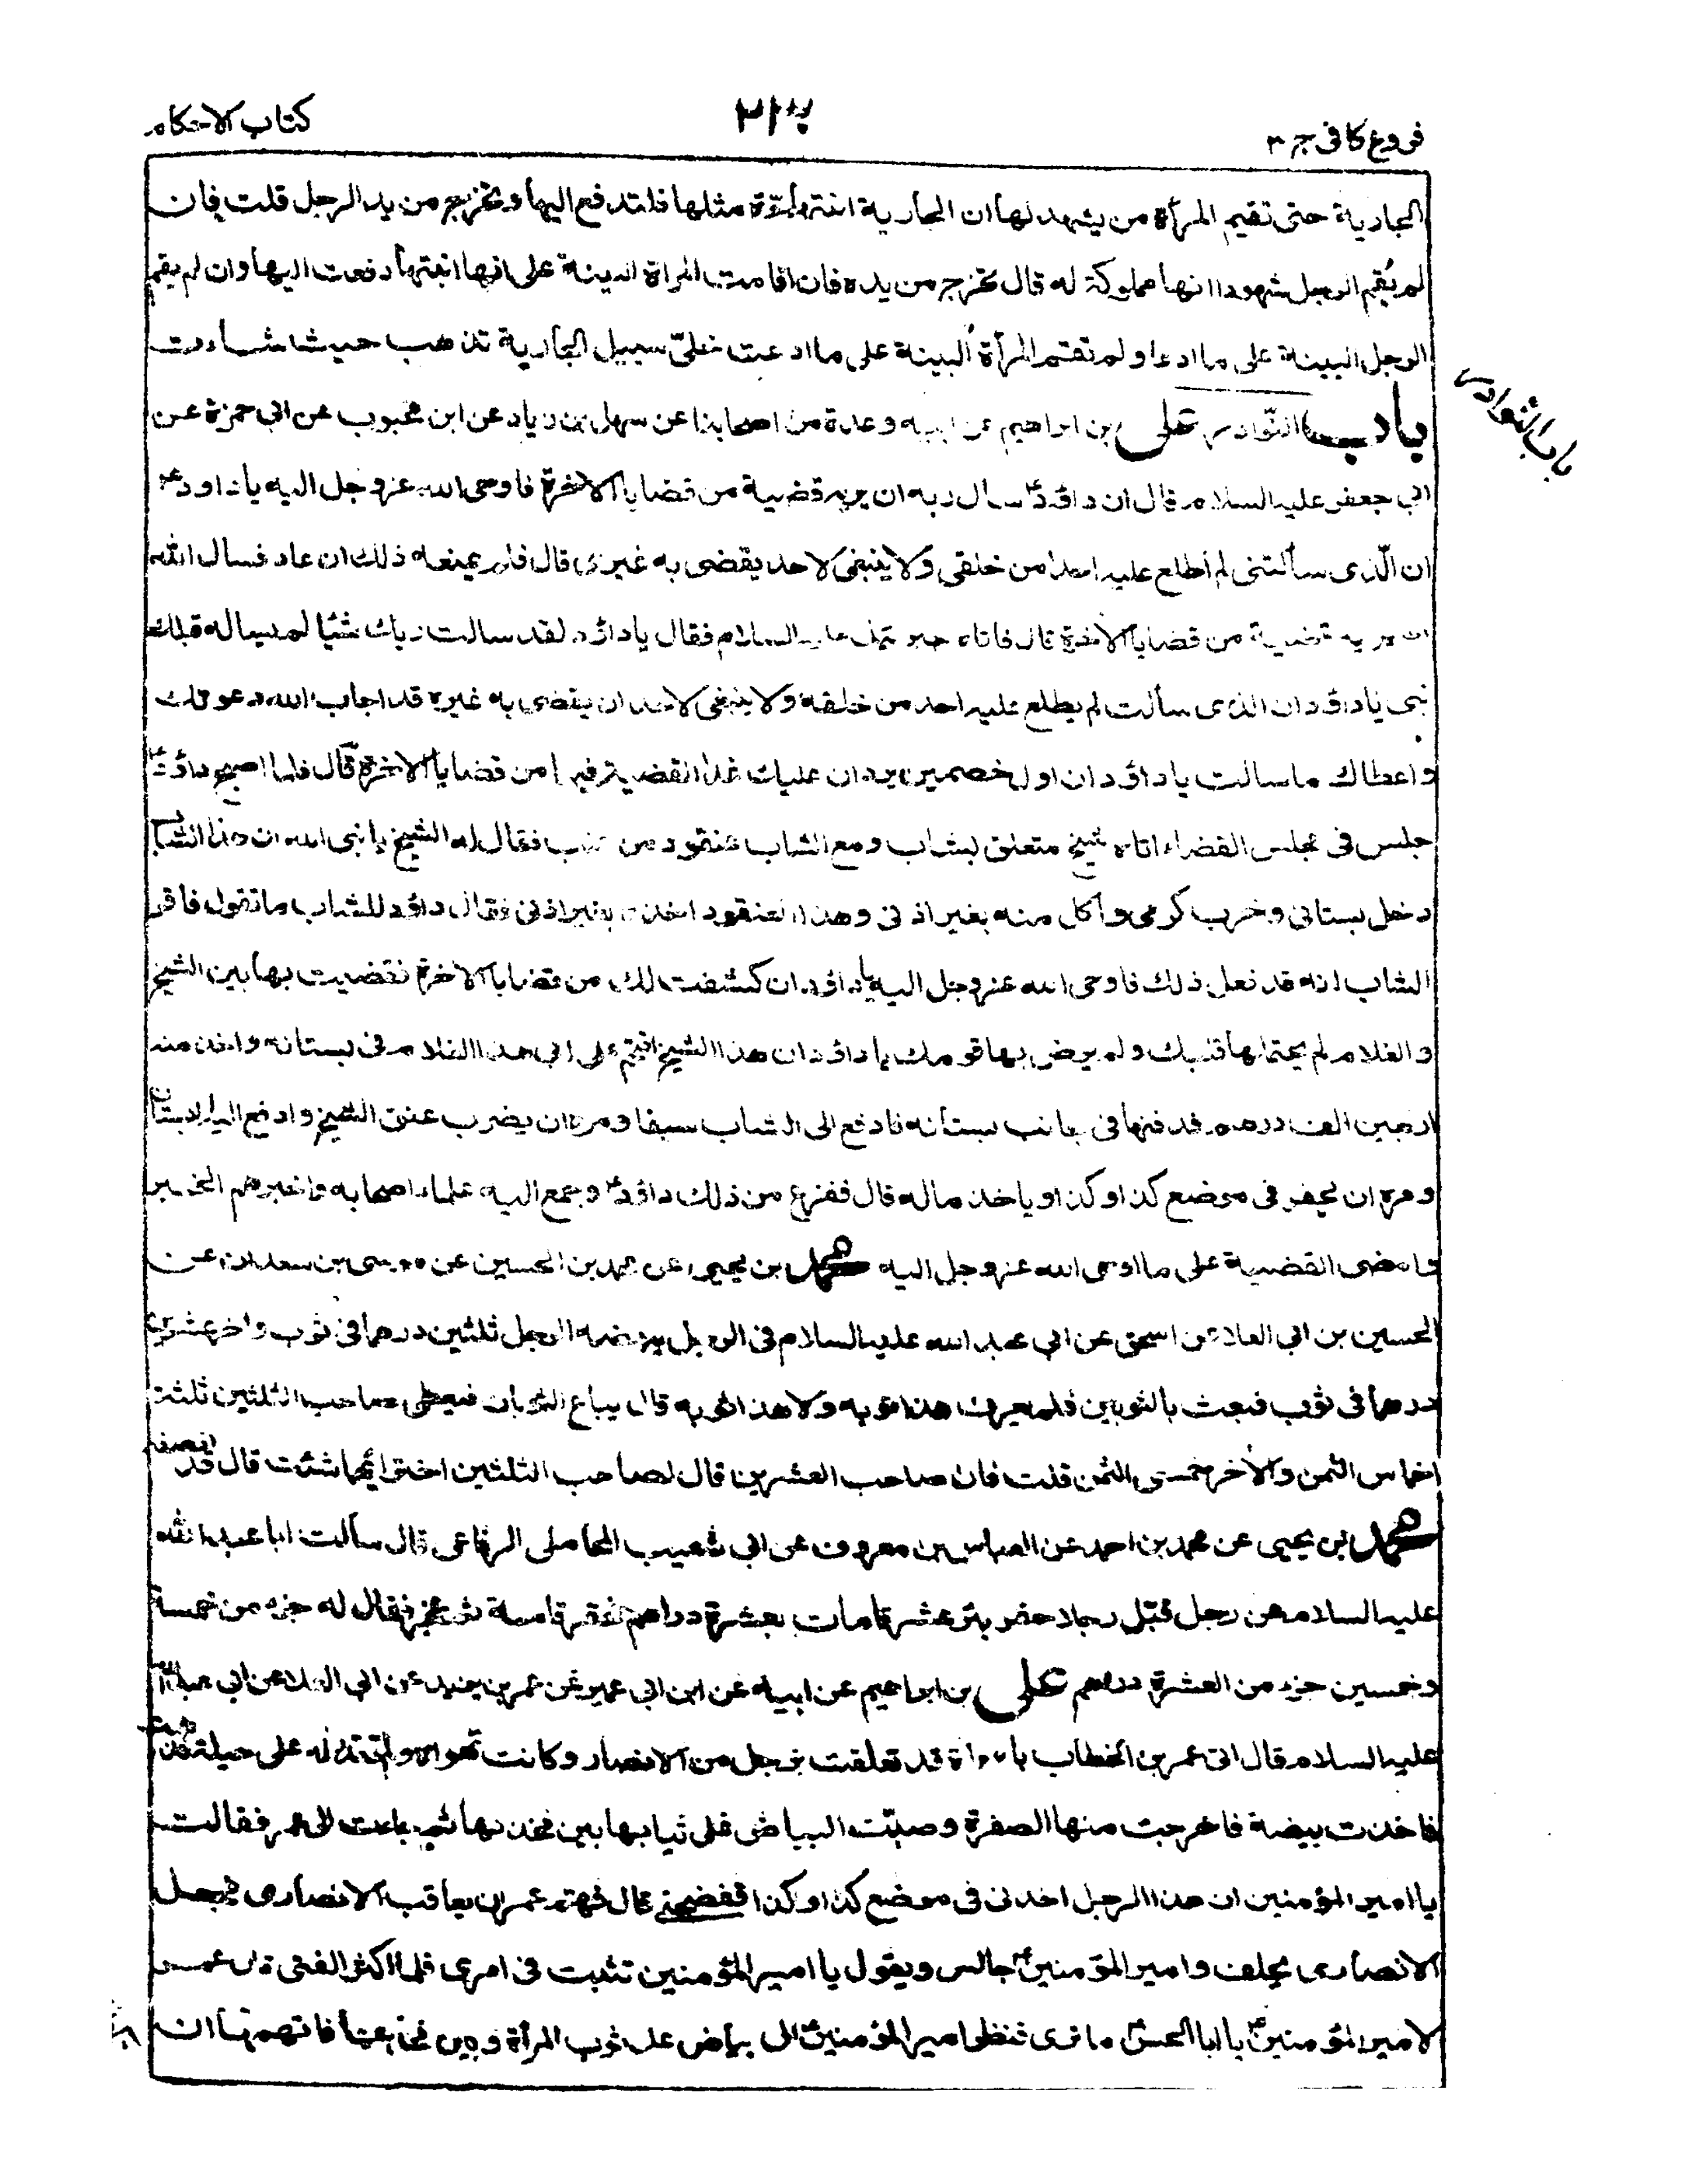 فروع كافى ج ٣
٣١٣
كتاب الاحكام
الجارية حتى تقيم المرأة من يشهد لها ان الجارية ابنتها حرة مثلها فلتدفع اليها وتخرج من يد الرجل قلت فان
لم يُقم الرجل شهودا انها مملوكة له قال تخرج من يده فان اقامت المرأة البينة على انها ابنتها دفعت اليها وان لم يقم
الرجل البينة على ما ادعا ولم تقم المرأة البينة على ما ادعت خلّى سبيل الجارية تذهب حيث شاءت
باب النوادر
باب النّوادر على بن ابراهيم عن ابيه وعدة من اصحابنا عن سهل بن زياد عن ابن محبوب عن ابى حمزة عن
ابى جعفر عليه السلام قال ان داؤدؑ سال ربه ان يريه قضية من قضايا الاخرة فاوحى الله عز وجل اليه يا داودؑ
ان الّذى سألتنى لم اطلع عليه احدا من خلقى ولا ينبغى لاحد يقضى به غيرى قال فلم يمنعه ذلك ان عاد فسال الله
ان يريه قضية من قضايا الاخرة قال فاتاه جبرئيل عليه السلام فقال يا داؤد لقد سالت ربك شيئا لم يساله قبلك
نبى يا داؤد ان الذى سألت لم يطلع عليه احد من خلقه ولا ينبغى لاحد ان يقضى به غيره قد اجاب الله دعوتك
واعطاك ما سالت يا داؤد ان اول خصمين يردان عليك غدا القضية فيهما من قضايا الاخرة قال فلما اصبح داؤدؑ
جلس فى مجلس القضاء اتاه شيخ متعلق بشاب ومع الشاب عنقود من عنب فقال له الشيخ يا نبى الله ان هذا الشاب
دخل بستانى وخرب كرمى واكل منه بغير اذنى وهذا العنقود اخذه بغير اذنى فقال داؤد للشاب ما تقول فاقر
الشاب انه قد فعل ذلك فاوحى الله عز وجل اليه يا داؤد ان كشفت لك من قضايا الاخرة فقضيت بها بين الشيخ
والغلام لم يحتملها قلبك ولم يرض بها قومك يا داؤد ان هذا الشيخ اقتحم على ابى هذا الغلام فى بستانه واخذ منه
اربعين الف درهم فدفنها فى جانب بستانه فادفع الى الشاب سيفا ومره ان يضرب عنق الشيخ وادفع اليه البستان
ومره ان يحفر فى موضع كذا وكذا وياخذ ماله قال ففزع من ذلك داؤدؑ وجمع اليه علماء اصحابه واخبرهم الخبر
وامضى القضية على ما اوحى الله عز وجل اليه محمد بن يحيى عن محمد بن الحسين عن موسى بن سعدان عن
الحسين بن ابى العلا عن اسحق عن ابى عبد الله عليه السلام فى الرجل يبضعه الرجل ثلثين درهما فى ثوب واخر عشرين
درهما فى ثوب فبعث بالثوبين فلم يعرف هذا ثوبه ولا هذا ثوبه قال يباع الثوبان فيعطى صاحب الثلثين ثلثة
اخماس الثمن والآخر خمسى الثمن قلت فان صاحب العشرين قال لصاحب الثلثين اختر ايّهما شئت قال قد انصفه
محمد بن يحيى عن محمد بن احمد عن العباس بن معروف عن ابى شعيب المحاملى الرفاعى قال سألت ابا عبد الله
عليه السلام عن رجل قبّل رجلا حفر بئر عشر قامات بعشرة دراهم فحفر قامة ثم عجز فقال له جزء من خمسة
وخمسين جزء من العشرة دراهم على بن ابراهيم عن ابيه عن ابن ابى عمير عن عمر بن يزيد عن ابى العلا عن ابى عبد الله
عليه السلام قال اتى عمر بن الخطاب بامراة قد تعلقت برجل من الانصار وكانت تهواه ولم تقدر له على حيلة فذهبت
فاخذت بيضة فاخرجت منها الصفرة وصبّت البياض على ثيابها بين فخذيها ثم جاءت الى عمر فقالت
يا امير المؤمنين ان هذا الرجل اخذنى فى موضع كذا وكذا ففضحنى قال فهمّ عمر ان يعاقب الانصارى فجعل
الانصارى يحلف وامير المؤمنينؑ جالس ويقول يا امير المؤمنين تثبت فى امرى فلما اكثر الفتى قال عمر
لامير المؤمنينؑ يا ابا الحسنؑ ما ترى فنظر امير المؤمنينؑ الى بياض على ثوب المرأة وبين فخذيها فاتهمها ان